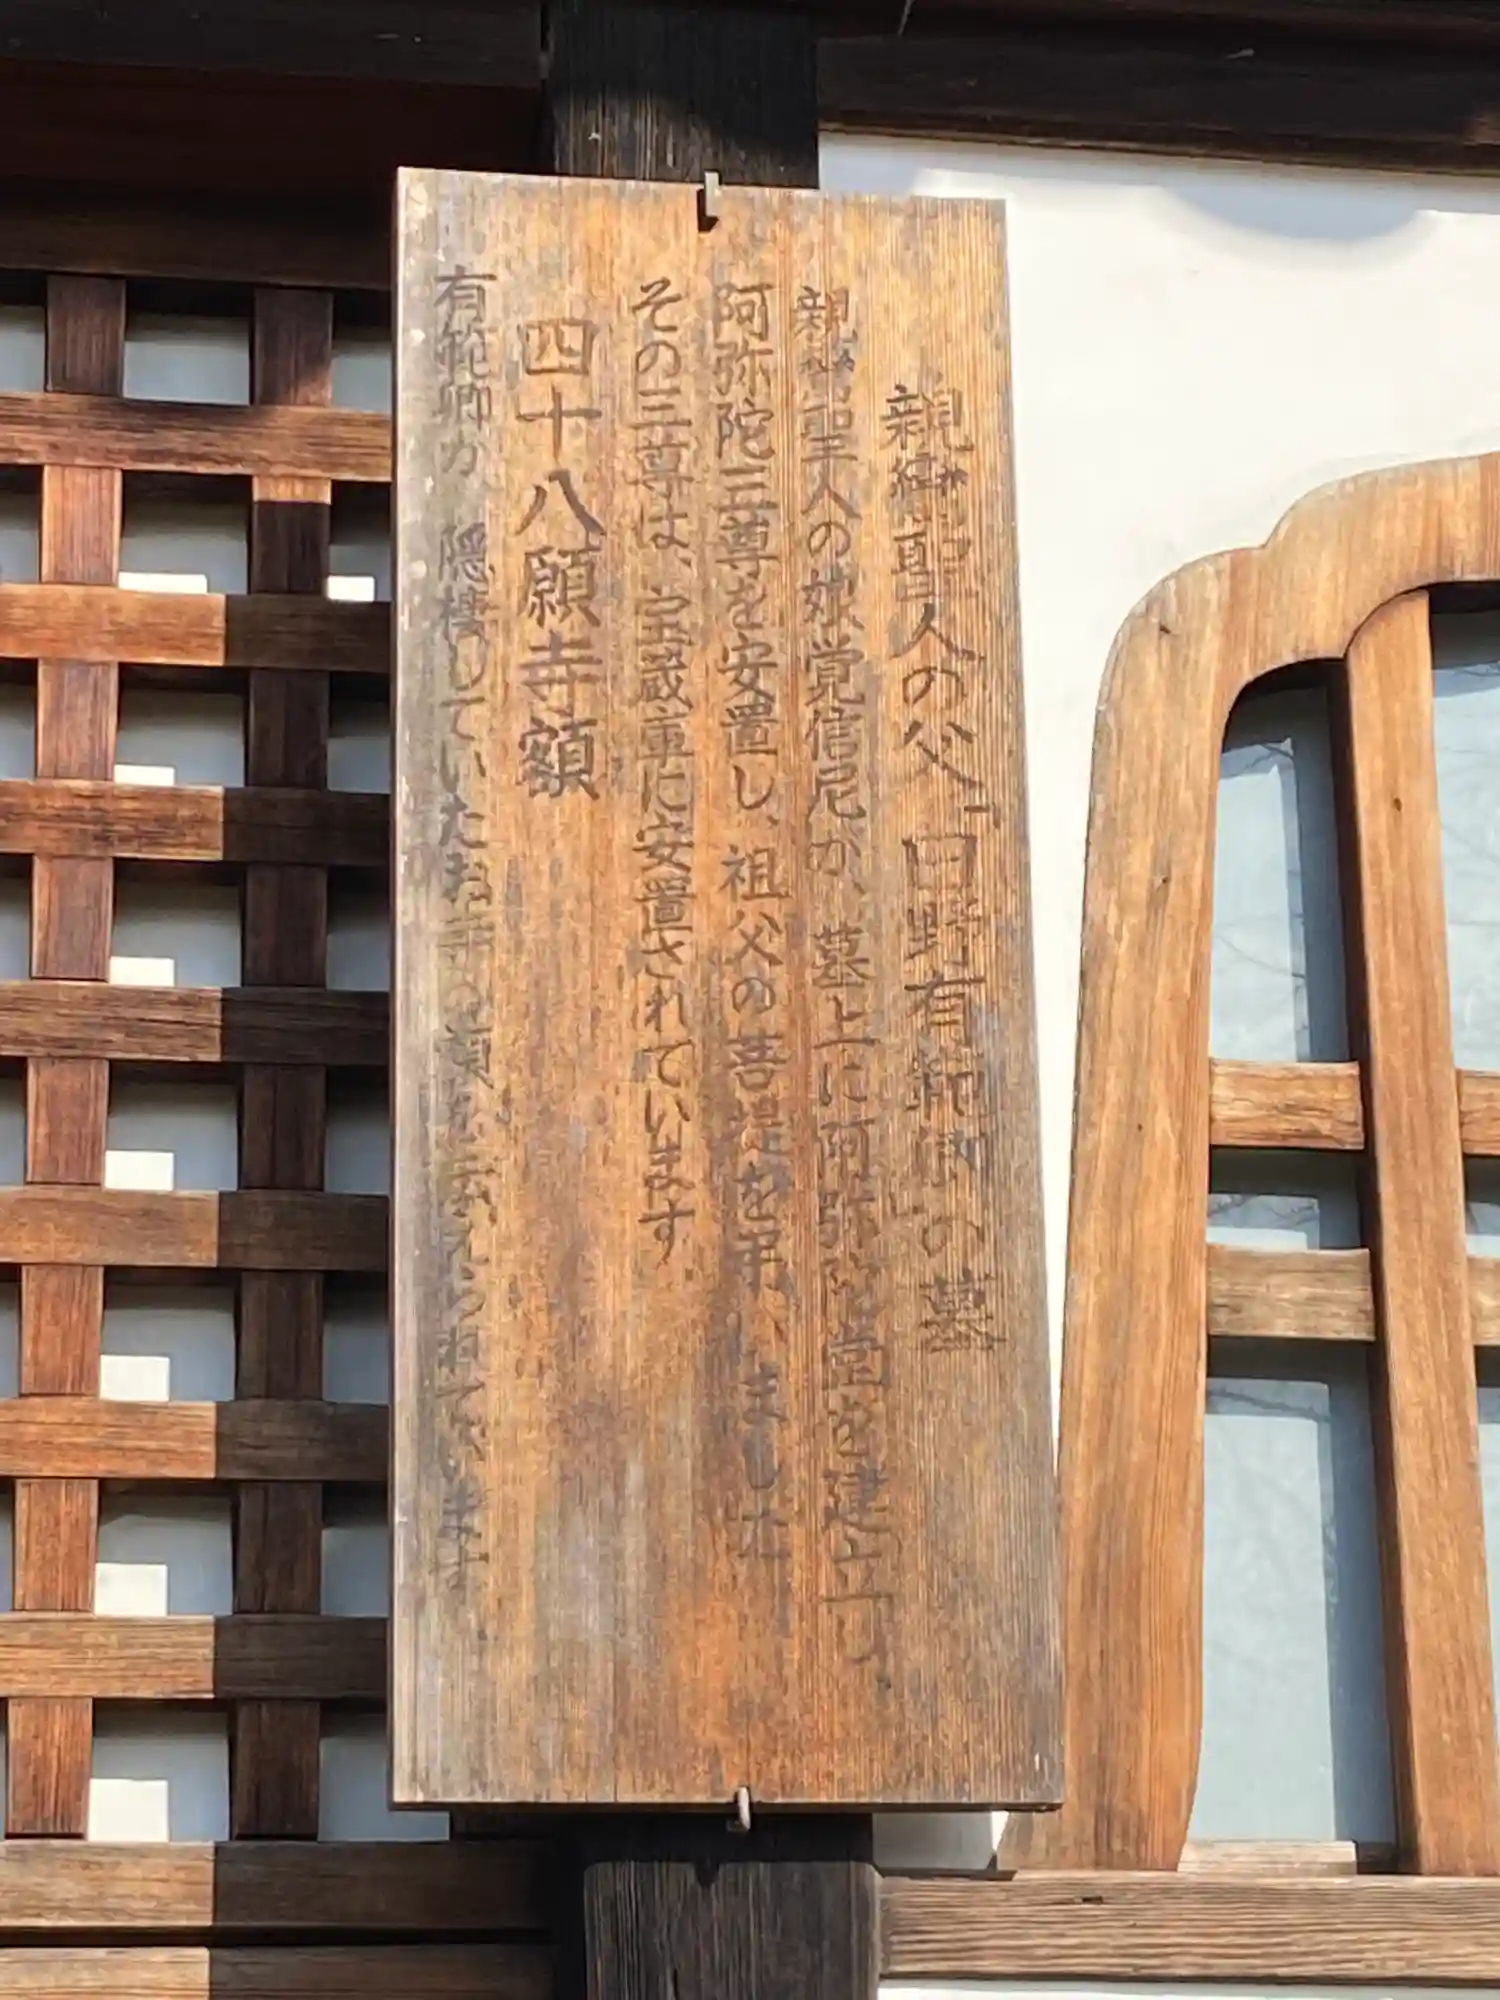 親鸞聖人の父、「日野有範卿」の墓
親鸞聖人の娘覚信尼が、墓上に阿弥陀堂を建立し、
阿弥陀三尊を安置し、祖父の菩提を弔いました
その三尊は、宝蔵庫に安置されています
四十八願寺額
有範卿が、隠棲していたお寺の額と伝えられています。